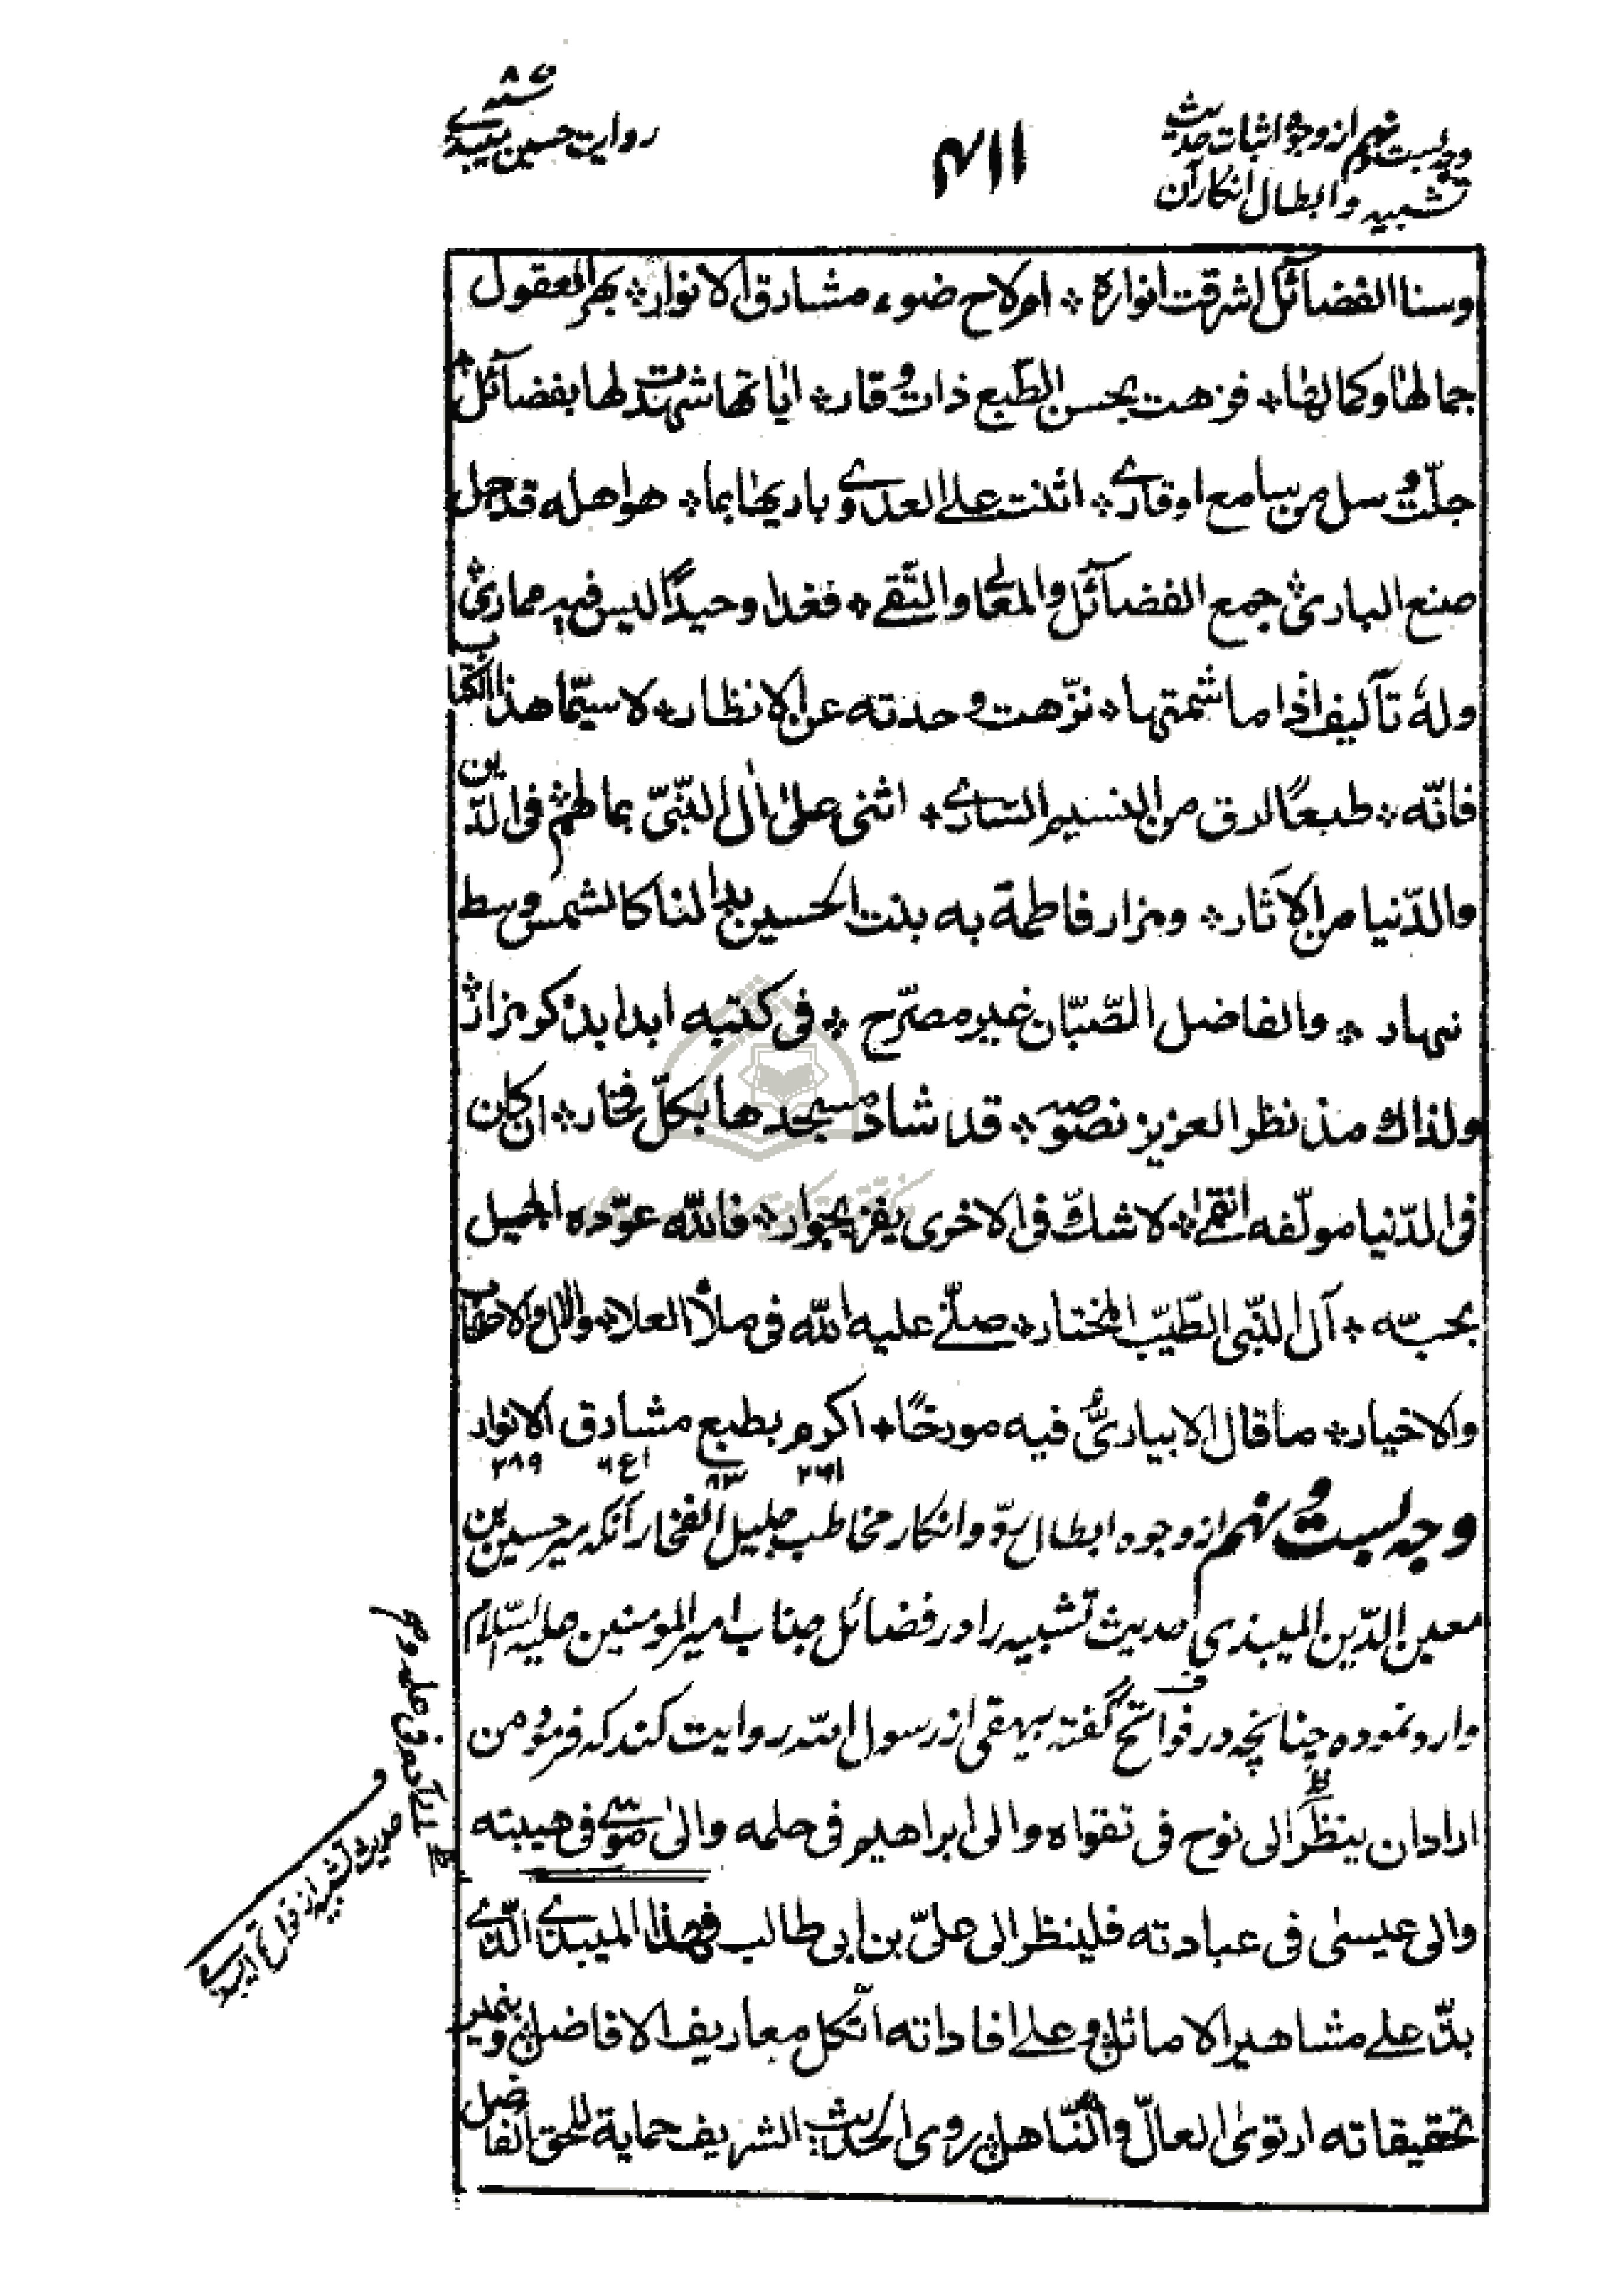 وجه بست و نهم از وجوه اثبات حدیث
تشبیه و ابطال انکار آن
۴۱۱
روایت حسین میبذے
وسنا الفضآئل اشرقت انواره * ام لاح ضوء مشارق الانوار * بهر العقول
جمالها وکمالها * فزهت بحسن الطّبع ذات وقار * ایاتها شهدت لها بفضآئل *
جلّت وسل من سامع اوقارے * اثنت علے العدے وباریها بما * هو اهله قد جل
صنع الباری * جمع الفضآئل والمعالے والتّقے * فغدا وحیداً لیس فیه مماری *
وله تآلیف اذا ما شمتها * نزّهت وحدته عن الانظار * لا سیّما هذا الکتاب
فانّه * طبعًا ارق من النسیم السّارے * اثنی علیٰ اٰل النّبیّ بما لهم * فی الدّین
والدّنیا من الاَثار * ومزار فاطمة به بنت الحسین بدا لنا کالشمس وسط
نهار * والفاضل الصّبّان غیر مصرّح * فی کتبه ابدا بذکر مزار *
ولذاك مذ نظر العزیز نصوصه * قد شاد مسجدها بکلّ فخار * ان کان
فی الدّنیا مولّفه انقے * لا شكّ فی الاخری یفز بجوار * فالله عوّده الجمیل
بحبّه * آل النّبی الطّیّب المختار * صلّے علیه الله فی ملأ العلا * والال والاصحاب
والاخیار * ما قال الابیاریُّ فیه مورخًا * اکرم بطبع مشارق الانوار
۲۶۱ ۸۳ ۶۴۱ ۲۸۹
وجه بست و نهم از وجوه ابطال ردّ و انکار مخاطب جلیل الفخار آنکه میر حسین بن
معین الدّین المیبذی حدیث تشبیه را در فضائل جناب امیر المومنین علیه السّلام
وارد نموده چنانچه در فواتح گفته بیهقی از رسول الله روایت کند که فرمود من
اراد ان ینظر الی نوح فی تقواه والی ابراهیم فی حلمه والیٰ موسے فی هیبته
والی عیسیٰ فی عبادته فلینظر الی علیّ بن ابی طالب فهذا المیبذے الّذے
بذّ علے مشاهیر الاماثل * وعلے افاداته اتّکل معاریف الافاضل * وبنمیر
تحقیقاته ارتویٰ العالّ والنّاهل * روی الحدیث الشریف حمایة للحق الفاضل
الی آدم فی علمه و م
حدیث تشبیه از فواتح میبذے